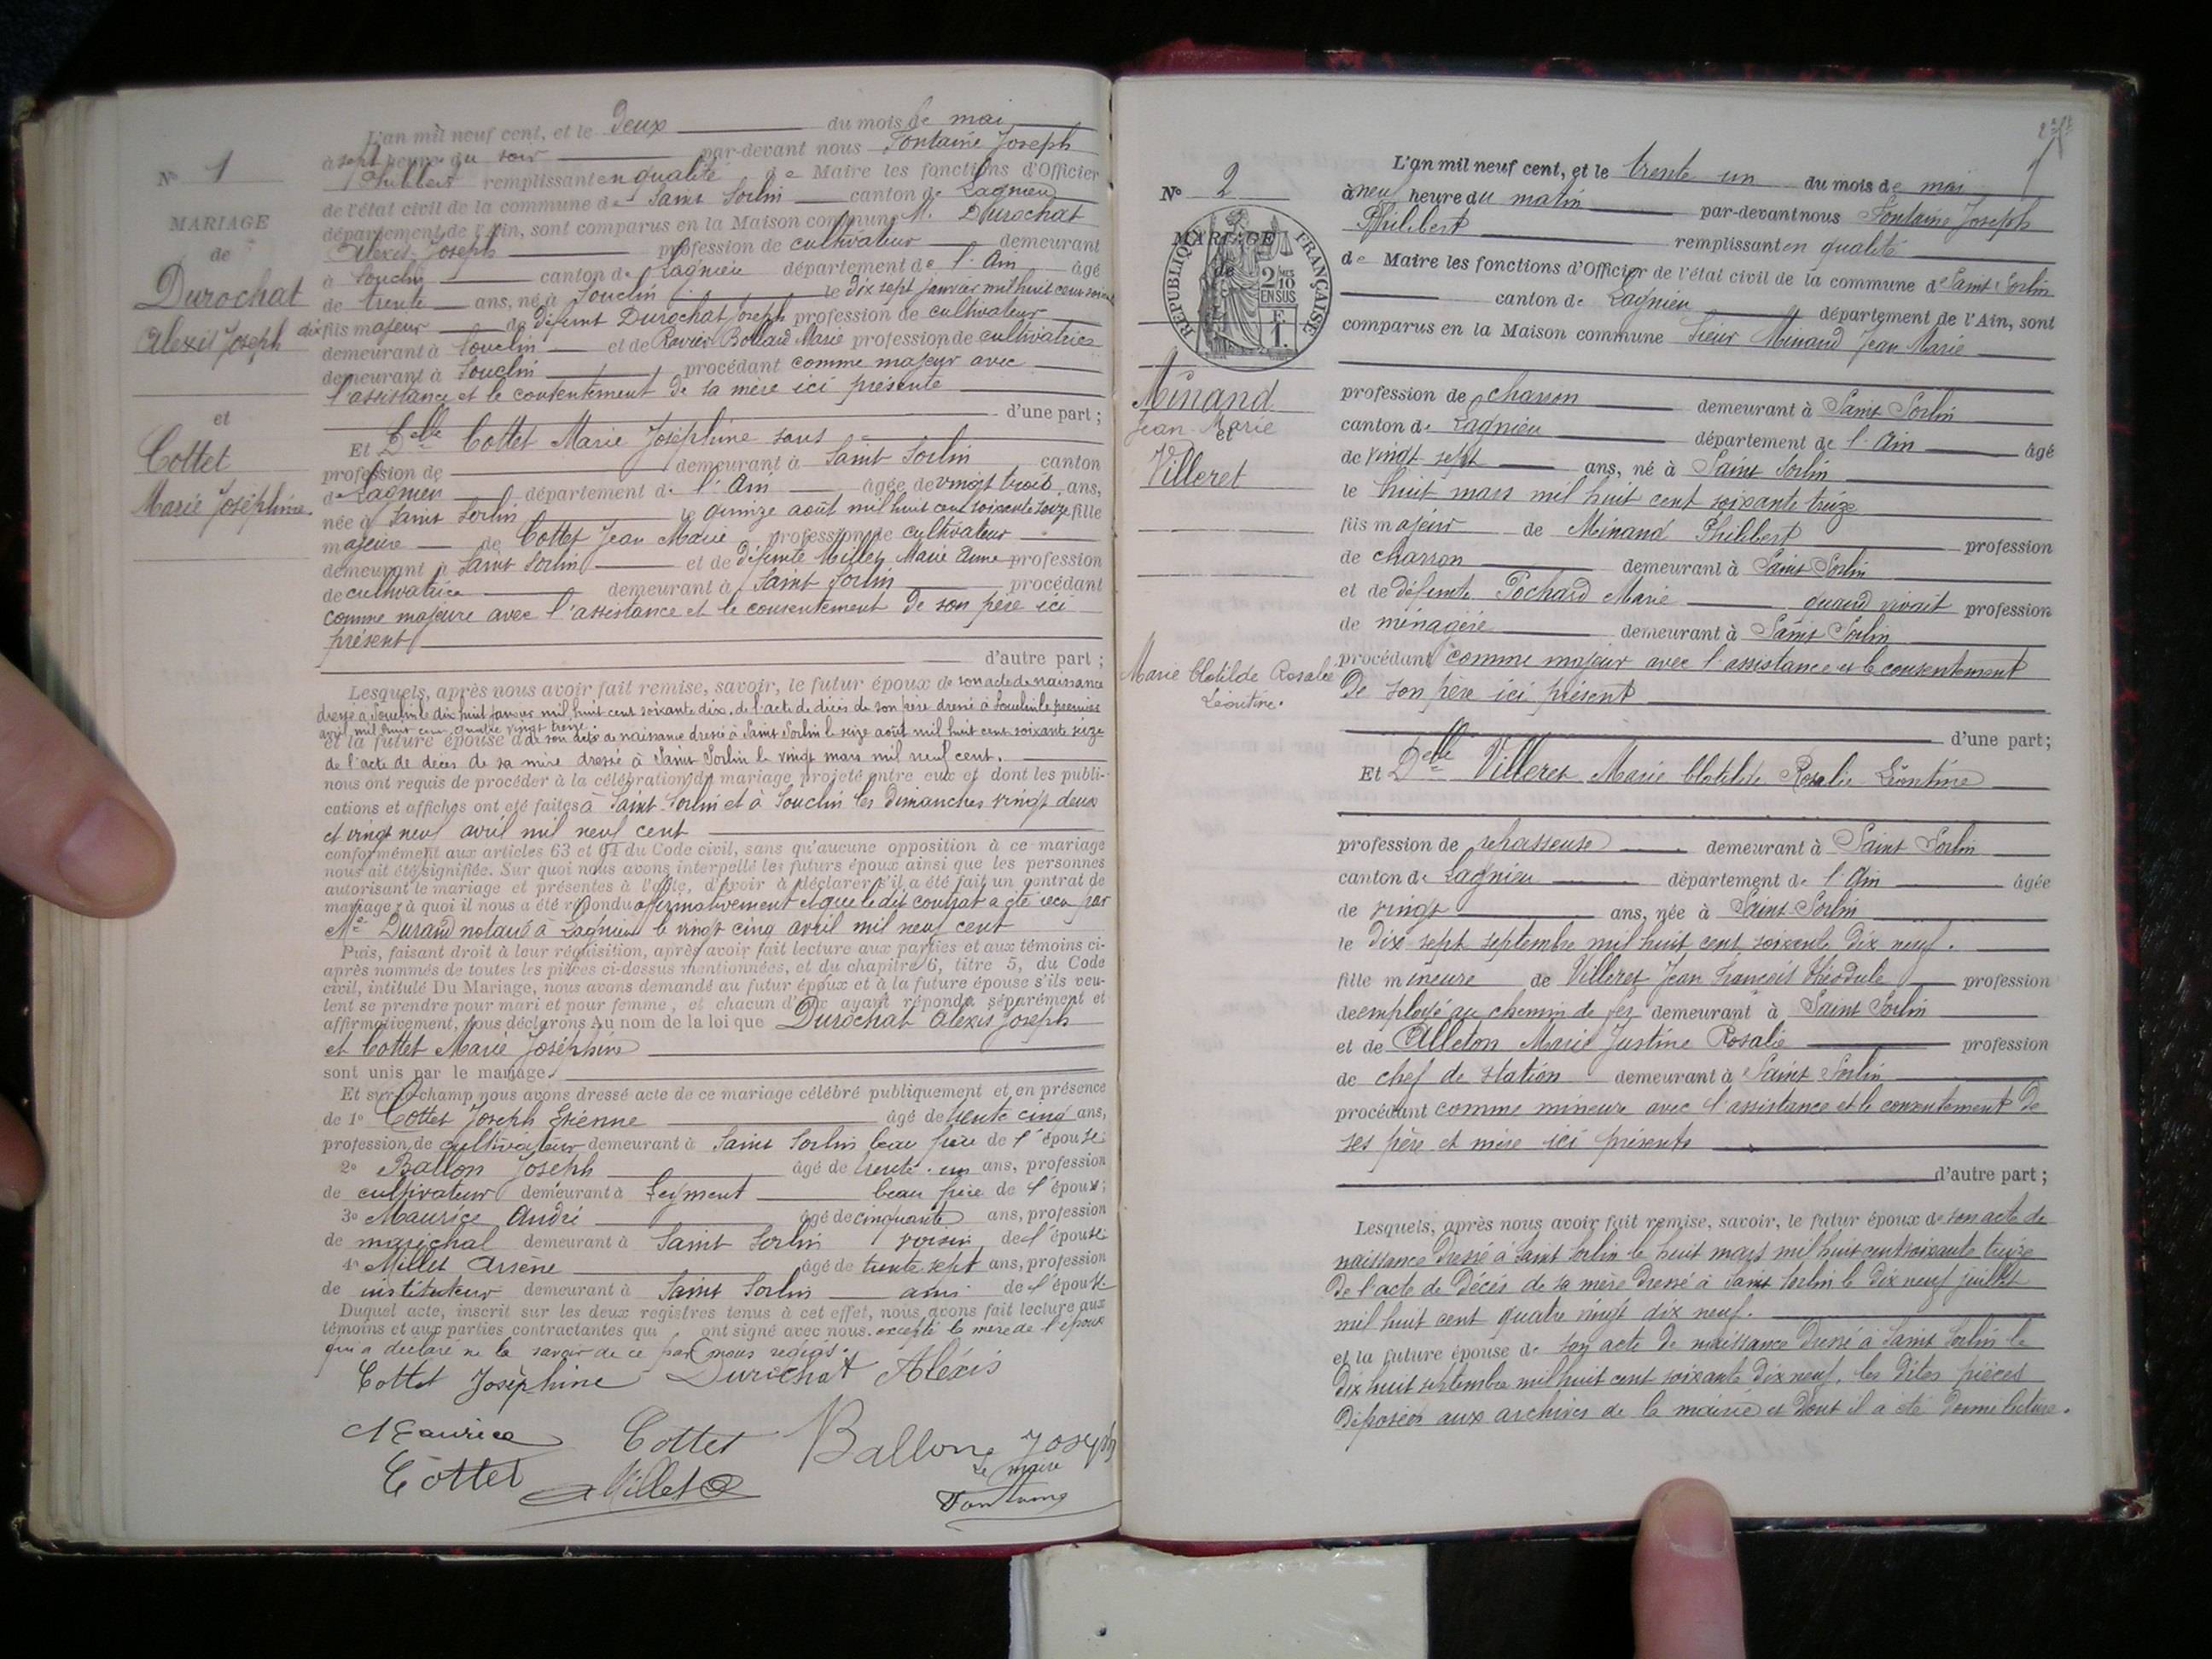 N° 1
MARIAGE
de
Durochat
Alexis Joseph
et
Cottet
Marie Joséphine.
L'an mil neuf cent, et le deux du mois de mai
à sept heure du soir par-devant nous Fontaine Joseph
Philibert remplissant en qualité de Maire les fonctions d'Officier
de l'état civil de la commune de Saint Sorlin canton de Lagnieu
département de l'Ain, sont comparus en la Maison commune M. Durochat
Alexis Joseph profession de cultivateur demeurant
à Souclin canton de Lagnieu département de l'Ain âgé
de trente ans, né à Souclin le dix sept janvier mil huit cent soixante
dix fils majeur de défunt Durochat Joseph profession de cultivateur
demeurant à Souclin et de Marie profession de cultivatrice
demeurant à Souclin procédant comme majeur avec
l'assistance et le contentement de sa mère ici présente
d'une part ;
Et Delle Cottet Marie Joséphine sans
profession de demeurant à Saint Sorlin canton
de Lagnieu département de l'Ain âgée de vingt trois ans,
née à Saint Sorlin le quinze août mil huit cent soixante seize fille
majeure de Cottet Jean Marie profession de cultivateur
demeurant à Saint Sorlin et de défunte Millet Marie Anne profession
de cultivatrice demeurant à Saint Sorlin procédant
comme majeure avec l'assistance et le consentement de son père ici
présent
d'autre part ;
Lesquels, après nous avoir fait remise, savoir, le futur époux de son acte de naissance
dressé à Souclin le dix huit janvier mil huit cent soixante dix. de l'acte de décès de son père dressé à Souclin le premier
avril mil huit cent quatre vingt treize.
et la future épouse de son acte de naissance dressé à Saint Sorlin le seize août mil huit cent soixante seize
de l'acte de décès de sa mère dressé à Saint Sorlin le vingt mars mil neuf cent.
nous ont requis de procéder à la célébration du mariage projeté entre eux et dont les publi-
cations et affiches ont été faites à Saint-Sorlin et à Souclin les dimanches vingt deux
et vingt neuf avril mil neuf cent
conformément aux articles 63 et 64 du Code civil, sans qu'aucune opposition à ce mariage
nous ait été signifiée. Sur quoi nous avons interpellé les futurs époux ainsi que les personnes
autorisant le mariage et présentes à l'acte, d'avoir à déclarer s'il a été fait un contrat de
mariage ; à quoi il nous a été répondu affirmativement et que le dit contrat a été reçu par
Me Durand notaire à Lagnieu le vingt cinq avril mil neuf cent
Puis, faisant droit à leur réquisition, après avoir fait lecture aux parties et aux témoins ci-
après nommés de toutes les pièces ci-dessus mentionnées, et du chapitre 6, titre 5, du Code
civil, intitulé Du Mariage, nous avons demandé au futur époux et à la future épouse s'ils veu-
lent se prendre pour mari et pour femme, et chacun d'eux ayant répondu séparément et
affirmativement, nous déclarons Au nom de la loi que Durochat Alexis Joseph
et Cottet Marie Joséphine
sont unis par le mariage.
Et sur-le-champ nous avons dressé acte de ce mariage célébré publiquement et en présence
de 1° Cottet Joseph Etienne âgé de trente cinq ans,
profession de cultivateur demeurant à Saint Sorlin beau frère de l'épouse
2° Ballon Joseph âgé de trente un ans, profession
de cultivateur demeurant à Leyment beau frère de l'époux ;
3° Maurice André âgé de cinquante ans, profession
de maréchal demeurant à Saint Sorlin voisin de l'épouse
4° Millet Arsène âgé de trente sept ans, profession
de instituteur demeurant à Saint Sorlin ami de l'épouse
Duquel acte, inscrit sur les deux registres tenus à cet effet, nous avons fait lecture aux
témoins et aux parties contractantes qui ont signé avec nous. excepté la mère de l'époux
qui a déclaré ne le savoir de ce par nous requis.
Cottet Josèphine Durochat Aléxis
Maurice Cottet Ballon Joseph
Cottet Millet Le maire
Fontaine
N° 2
MARIAGE
de
RÉPUBLIQUE FRANÇAISE
2/10 MES
EN SUS
F.
1.
Minand
Jean Marie
et
Villeret
Marie Clotilde Rosalie
Léontine.
L'an mil neuf cent, et le trente un du mois de mai
à neuf heure du matin par-devant nous Fontaine Joseph
Philibert remplissant en qualité
de Maire les fonctions d'Officier de l'état civil de la commune de Saint Sorlin
canton de Lagnieu département de l'Ain, sont
comparus en la Maison commune Sieur Minand Jean Marie
profession de charron demeurant à Saint Sorlin
canton de Lagnieu département de l'Ain âgé
de vingt sept ans, né à Saint Sorlin
le huit mars mil huit cent soixante treize
fils majeur de Minand Philibert profession
de charron demeurant à Saint Sorlin
et de défunte Pochard Marie quand vivait profession
de ménagère demeurant à Saint Sorlin
procédant comme majeur avec l'assistance et le consentement
de son père ici présent
d'une part ;
Et Delle Villeret Marie Clotilde Rosalie Léontine
profession de rehasseuse demeurant à Saint Sorlin
canton de Lagnieu département de l'Ain âgée
de vingt ans, née à Saint Sorlin
le dix sept septembre mil huit cent soixante dix neuf.
fille mineure de Villeret Jean François Théodule profession
de employé au chemin de fer demeurant à Saint Sorlin
et de Alleton Marie Justine Rosalie profession
de chef de station demeurant à Saint Sorlin
procédant comme mineure avec l'assistance et le consentement de
ses père et mère ici présents
d'autre part ;
Lesquels, après nous avoir fait remise, savoir, le futur époux de son acte de
naissance dressé à Saint Sorlin le huit mars mil huit cent soixante treize
de l'acte de décès de sa mère dressé à Saint Sorlin le dix neuf juillet
mil huit cent quatre vingt dix neuf.
et la future épouse de son acte de naissance dressé à Saint Sorlin le
dix huit septembre mil huit cent soixante dix neuf. les dites pièces
déposées aux archives de la mairie et dont il a été donné lecture.